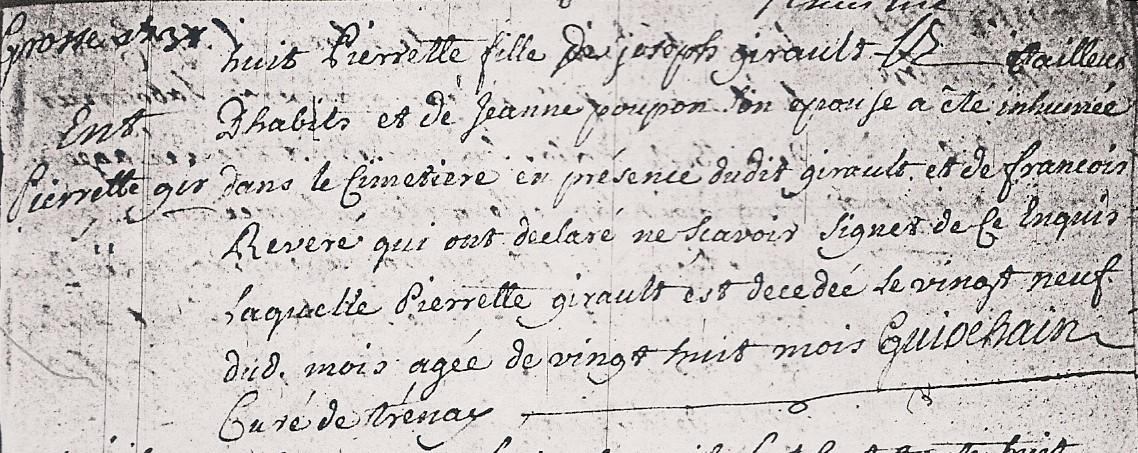 grosse
huit Pierrette fille de joseph girault tailleur
Ent.
Dhabits et de Jeanne poupon Son epouse a été inhumée
Pierrette gir
dans le Cimetiere en présence dudit girault. et de francois
Reveré qui ont declaré ne Scavoir Signer de Ce Enquis
laquelle Pierrette girault est decedée le vingt neuf
dud. mois agée de vingt huit mois Guiochain
Curé de trénay